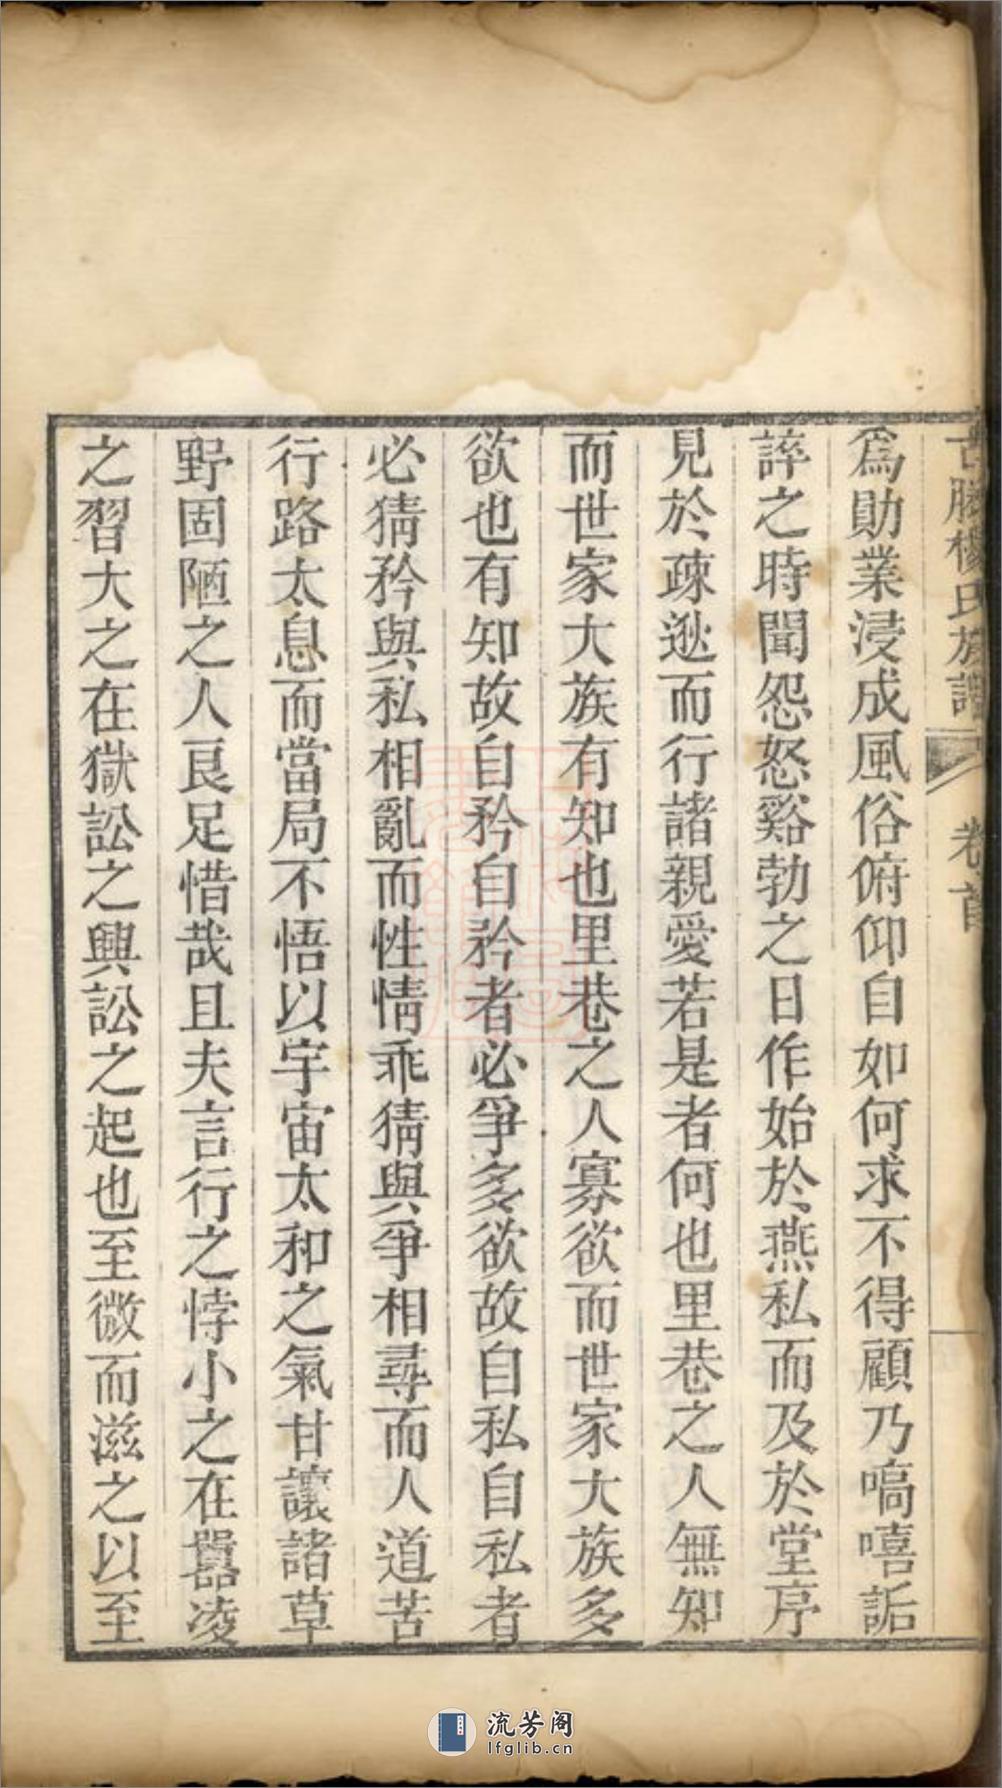 古滕楊氏族譜 卷首
爲勛業浸成風俗俯仰自如何求不得顧乃嗃嘻詬
誶之時聞怨怒谿勃之日作始於燕私而及於堂序
見於疎逖而行諸親愛若是者何也里巷之人無知
而世家大族有知也里巷之人寡欲而世家大族多
欲也有知故自矜自矜者必爭多欲故自私自私者
必猜矜與私相亂而性情乖猜與爭相尋而人道苦
行路太息而當局不悟以宇宙太和之氣甘讓諸草
野固陋之人良足惜哉且夫言行之悖小之在嚣凌
之習大之在獄訟之興訟之起也至微而滋之以至
流芳阁
lfglib.cn